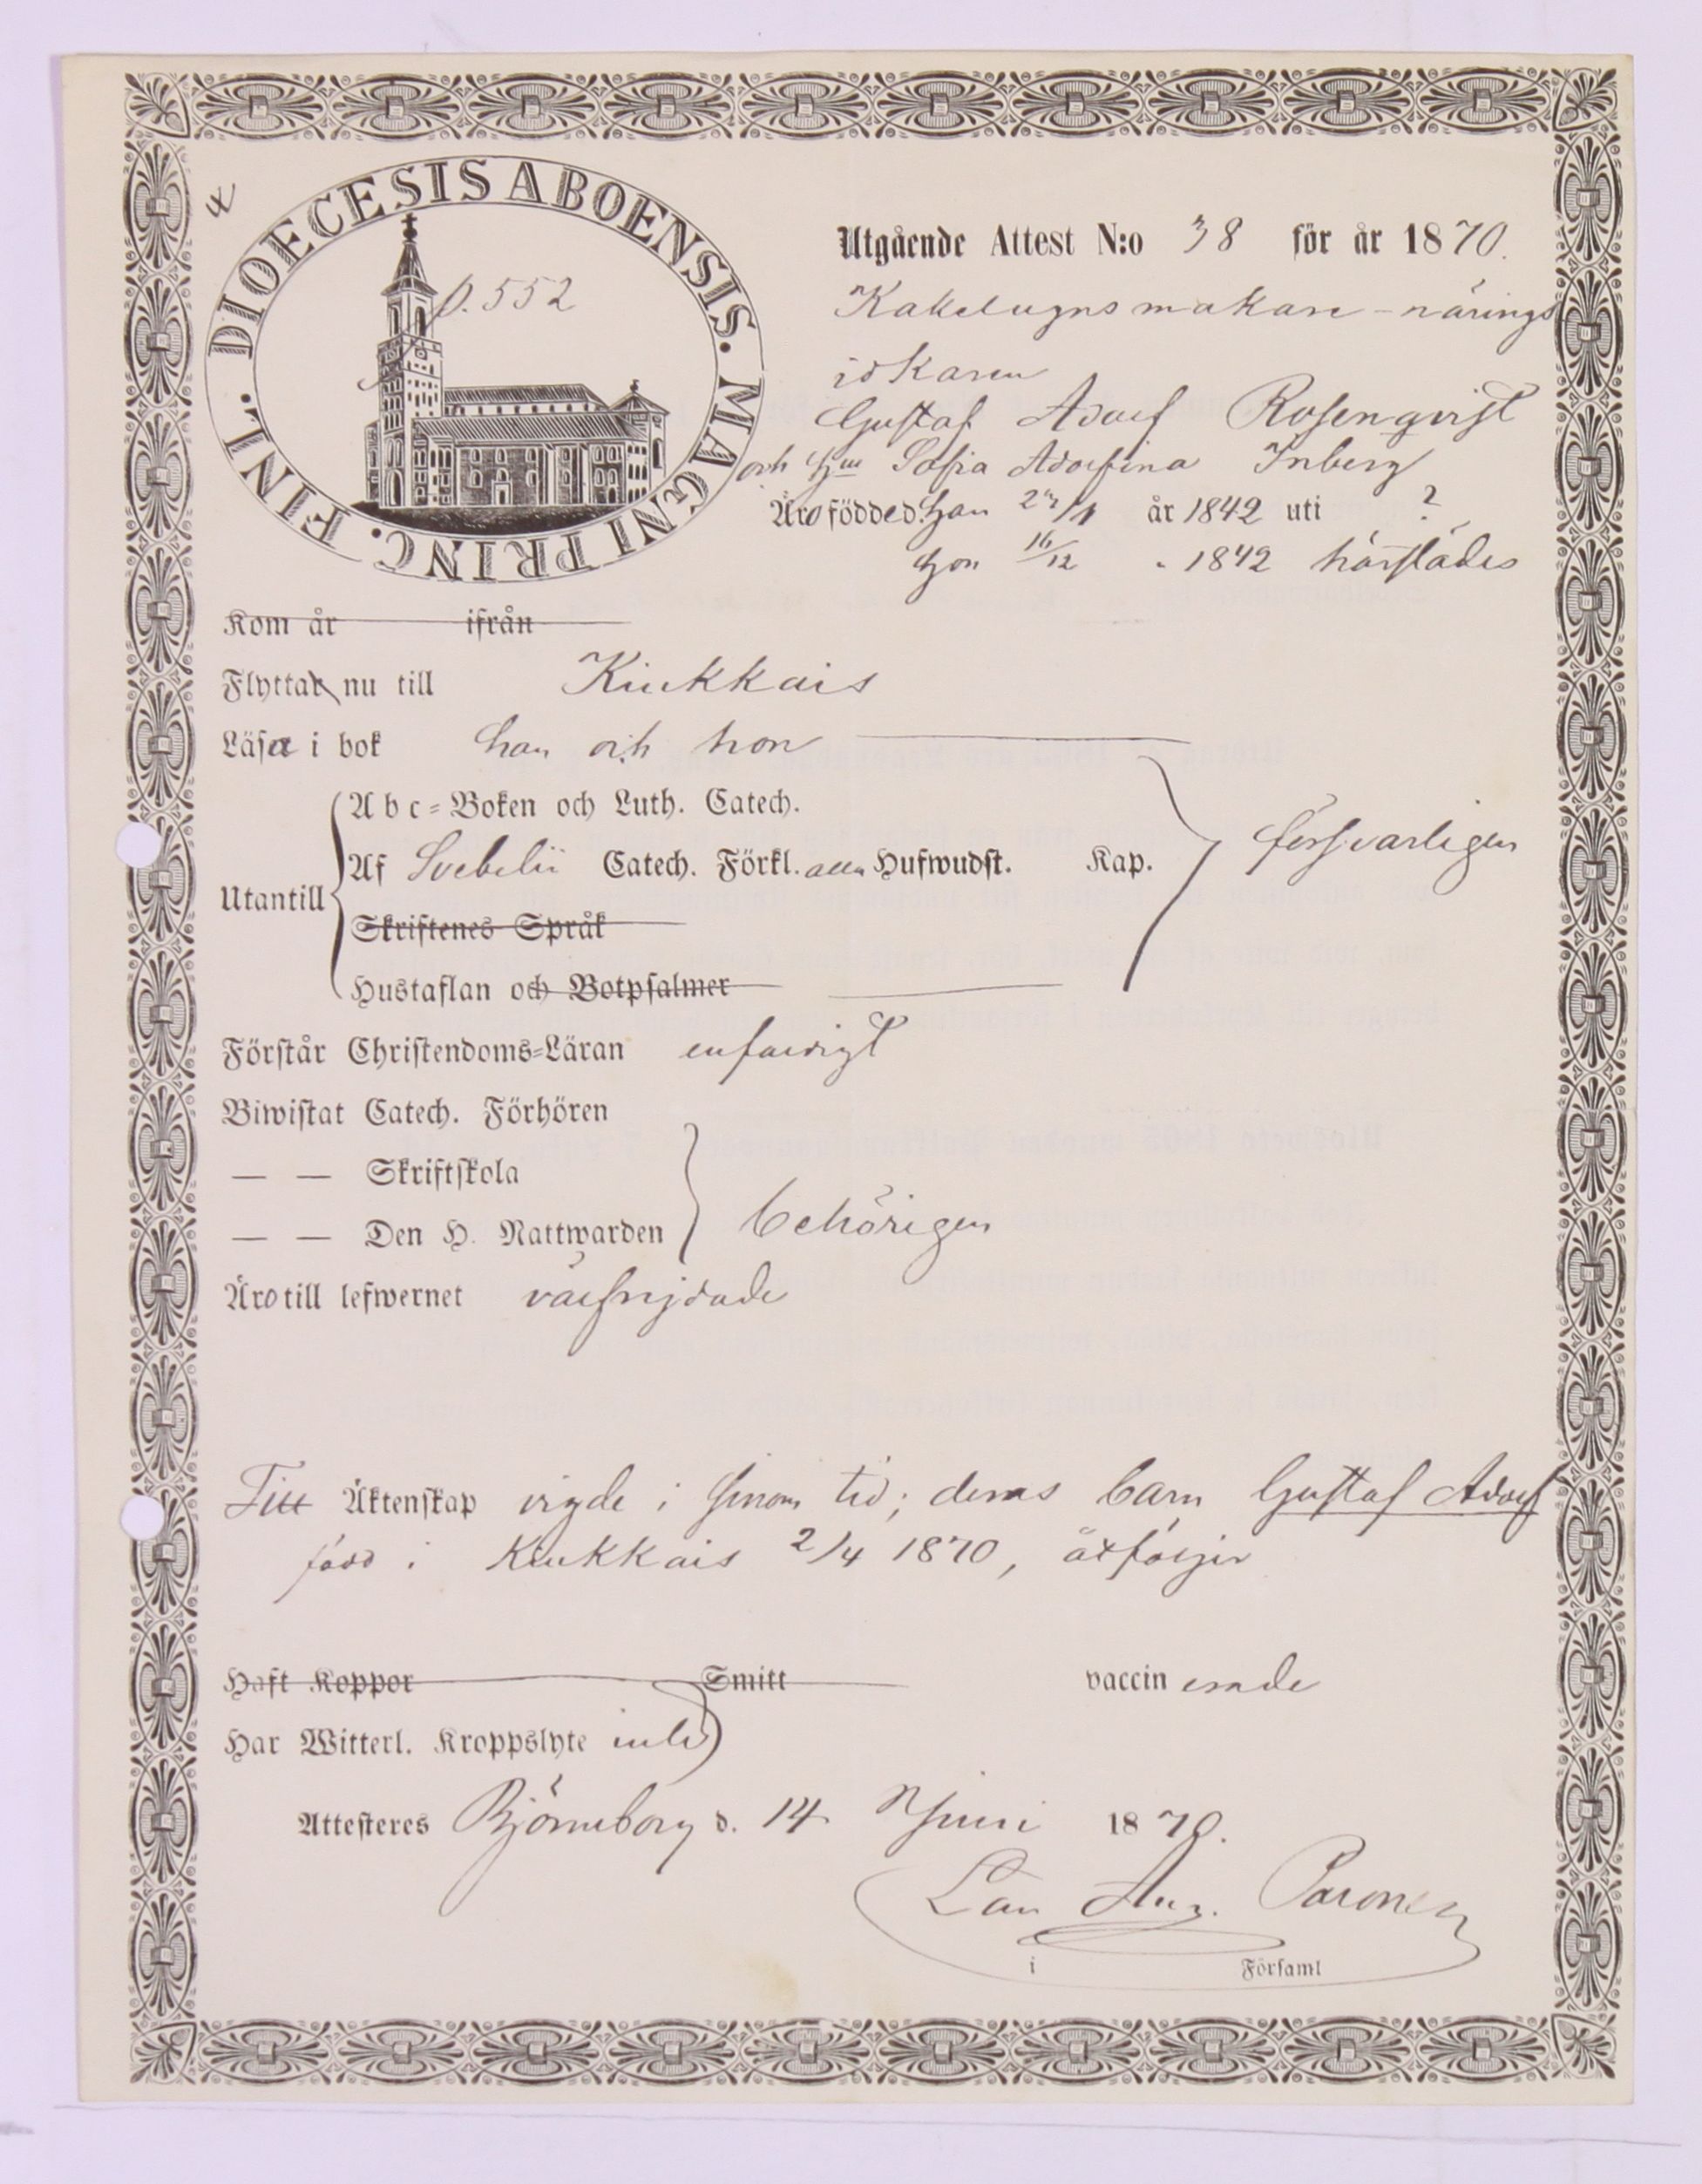 4
DIOECESIS ABOENSIS. MAGNI PRINC. FINL.
p. 552
Utgående Attest N:o 38 för år 1870.
Kakelugnsmakare-närings
idkaren
Gustaf Adolf Rosenqvist
och Hu Sofia Adolfina Inberg
Äro födde d. Han år 1842 uti ?
Hon 16/12 " 1842 härstädes
Kom år ifrån
Flyttar nu till Kiukkais
Läsa i bok han och hon
Utantill
Abc-Boken och Luth. Catech.
Af Svebelii Catech. Förkl. alla Hufwudst. Kap. försvarligen
Skriftenes Språk
Hustaflan och Botpsalmer
Förstår Christendoms-Läran enfaldigt
Biwistat Catech. Förhören
— — Skriftskola
— — Den H. Nattwarden behörigen
Äro till lefwernet välfrejdade
Till Äktenskap vigde i sinom tid; deras barn Gustaf Adolf
född i Kiukkais 2/4 1870, åtföljer
Haft Koppor Smitt vaccinerade
Har Witterl. Kroppslyte inte
Attesteres Björneborg d. 14 Juni 1870.
Aug.
i Församl